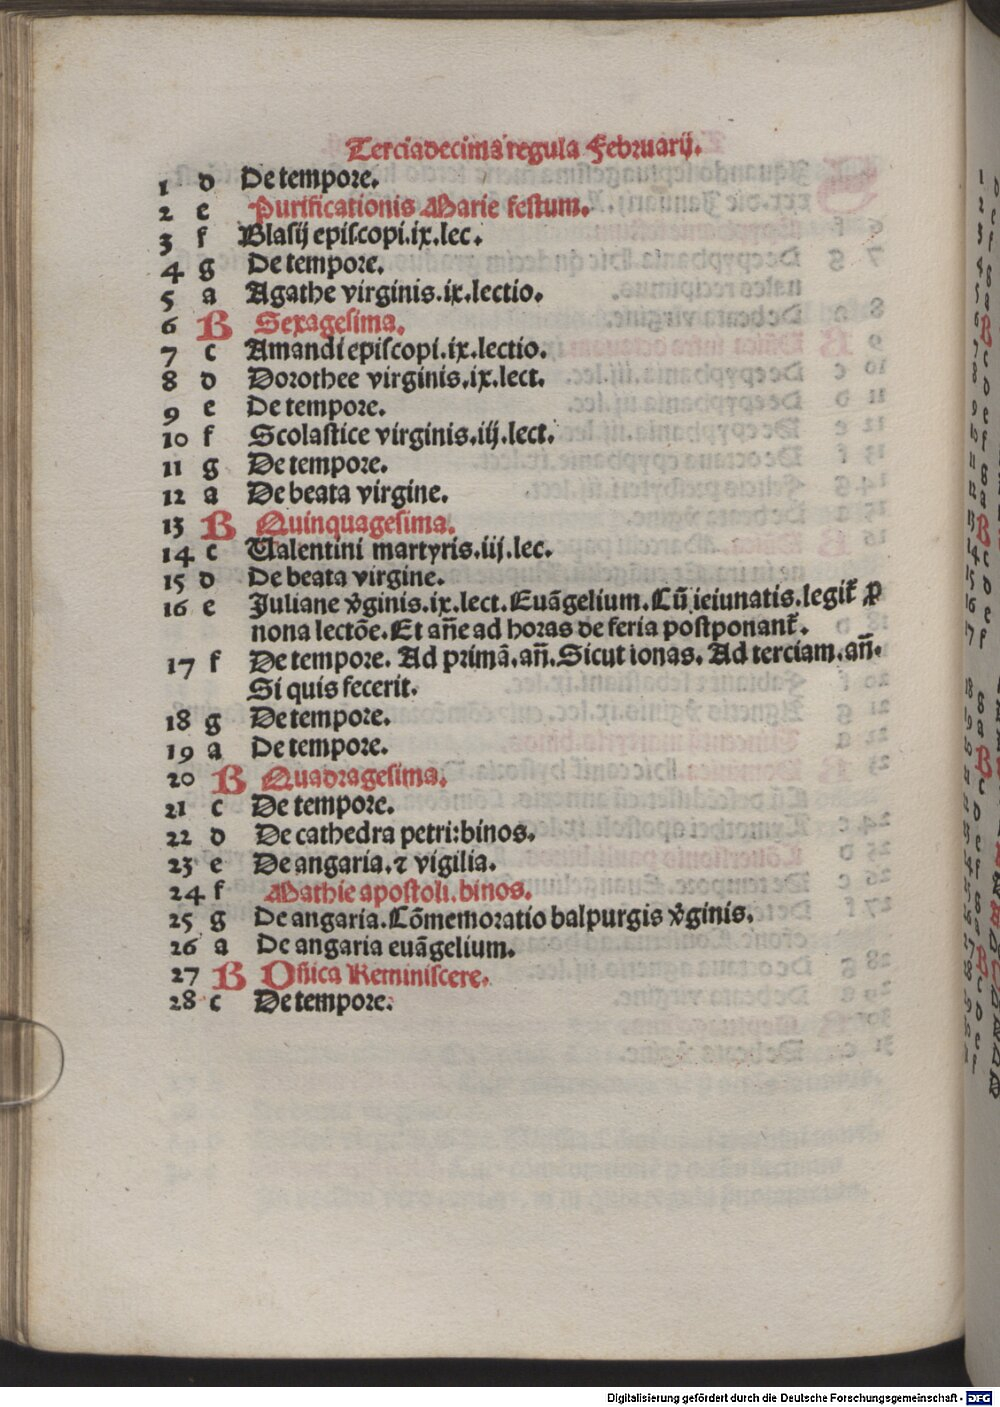 Terciadecima regula Februarij.
1 d De tempore.
2 e Purificationis Marie festum.
3 f Blasij episcopi.ix.lec.
4 g De tempore.
5 a Agathe virginis.ix.lectio.
6 B Sexagesima.
7 c Amandi episcopi.ix.lectio.
8 d Dorothee virginis.ix.lect.
9 e De tempore.
10 f Scolastice virginis.iij.lect.
11 g De tempore.
12 a De beata virgine.
13 B Quinquagesima.
14 c Ualentini martyris.iij.lec.
15 d De beata virgine.
16 e Juliane v̕ginis.ix.lect.Euãgelium.Cũ ieiunatis.legit᷑ ꝓ
nona lectõe.Et añe ad horas de feria postponant᷑.
17 f De tempore. Ad primã.añ.Sicut ionas. Ad terciam.añ.
Si quis fecerit.
18 g De tempore.
19 a De tempore.
20 B Quadragesima.
21 c De tempore.
22 d De cathedra petri:binos.
23 e De angaria.⁊ vigilia.
24 f Mathie apostoli.binos.
25 g De angaria.Cõmemoratio balpurgis v̕ginis.
26 a De angaria euãgelium.
27 B Dñica Reminiscere.
28 c De tempore.
Digitalisierung gefördert durch die Deutsche Forschungsgemeinschaft - DFG